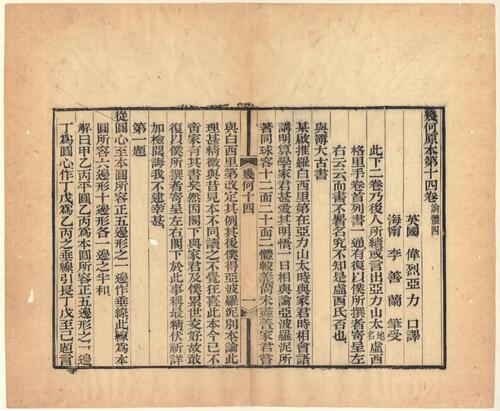 幾何原本第十四卷 論體四
英國 偉烈亞力 口譯
海甯 李善蘭 筆受
此下二卷乃後人所續或言出亞力山太地名虛西
格里手卷首列書一通有復以僕所撰者寄呈左
右云云而書不署名究不知是虛西氏否也
與薄大古書
某啟推羅白西里第在亞力山太時與家君時相會語
講明算學家君甚愛其明悟一日相與論亞波羅泥所
著同球容十二面二十面二體較義尚未盡善家君嘗
幾何十四 一
與白西里第改定其例其後僕得亞波羅泥別本論此
理甚精微與昔見本不同讀之不覺狂喜此本今已不
啻家有其書矣然因閣下與家君及僕累世交好故敢
復以僕所撰者寄呈左右閣下於此事稱最精伏祈詳
加檢閱誨我不逮幸甚
第一題
從圜心至本圜所容正五邊形之一邊作垂線此線爲本
圜所容六邊形十邊形各一邊之半和
解曰甲乙丙平圜乙丙爲本圜所容正五邊形之一邊
丁爲圜心作丁戊爲乙丙之垂線引長丁戊至己題言